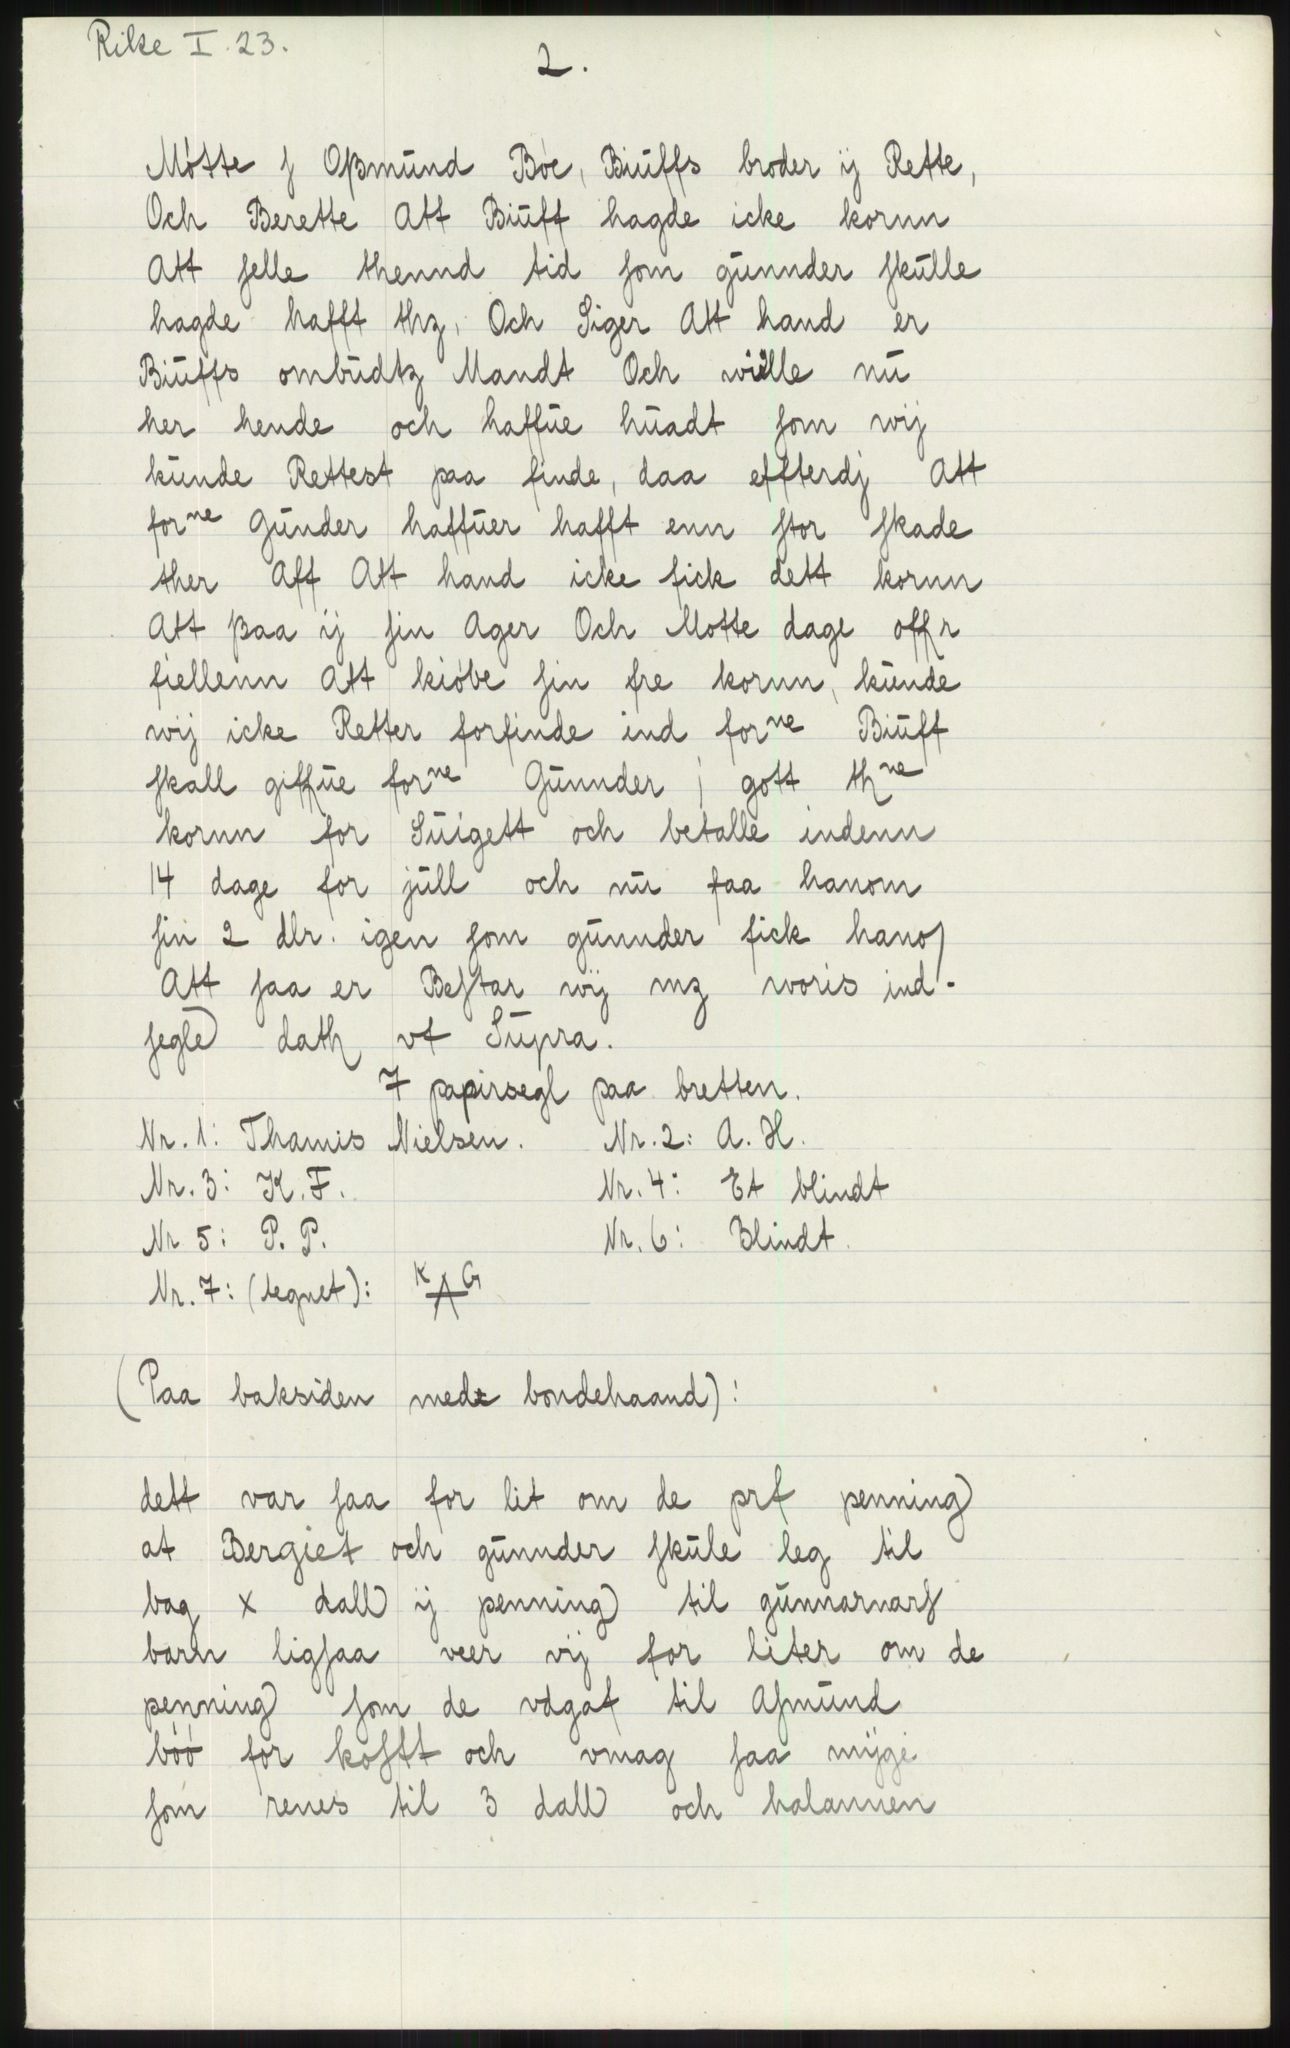 Rike I. 23.
2.
Mótte ȷ Oßmund Bóe, Biuffs broder ij Rette,
Och Berette Att Biuff hagde icke kornn
Att selle thennd tid som gunnder skulle
hagde hafft thz, Och Siger Att hand er
Biuffs ombudtz Mandt Och wille nu
her hende och haffue huadt som wij
kunde Rettest paa finde, daa effterdj Att
forne Gunder haffuer hafft enn stor skade
ther Aff Att hand icke fick dett kornn
Att ßaa ij sin Ager Och Motte dage offr
fiellenn Att kióbe sin fre kornn, kunde
wij icke Retter forfinde ind forne Biuff
skall giffue forne Gunnder j gott thne
kornn for Suigett och betalle indenn
14 dage for jull och nu faa hanom
sin 2 dlr. igen som gunnder fick hano
Att saa er Bestar wij mz woris ind-
segle dath vt Supra.
7 papirsegl paa bretten.
Nr. 1: Thamis Nielsen. Nr. 2: A. H.
Nr. 3: K. F. Nr. 4: Et blindt
Nr 5: P. P. Nr. 6: Blindt.
Nr. 7: (tegnet): K A G
(Paa baksiden med bondehaand):
dett var saa for lit om de prf penning
at Bergiet och gunnder skule leg til
bag x dall ij penning til gunnarnars
barn ligsaa veer vij for liter om de
penning som de vdgaf til Asmund
bóó for kostt och vmag saa mijge
som renes til 3 dall och halannen